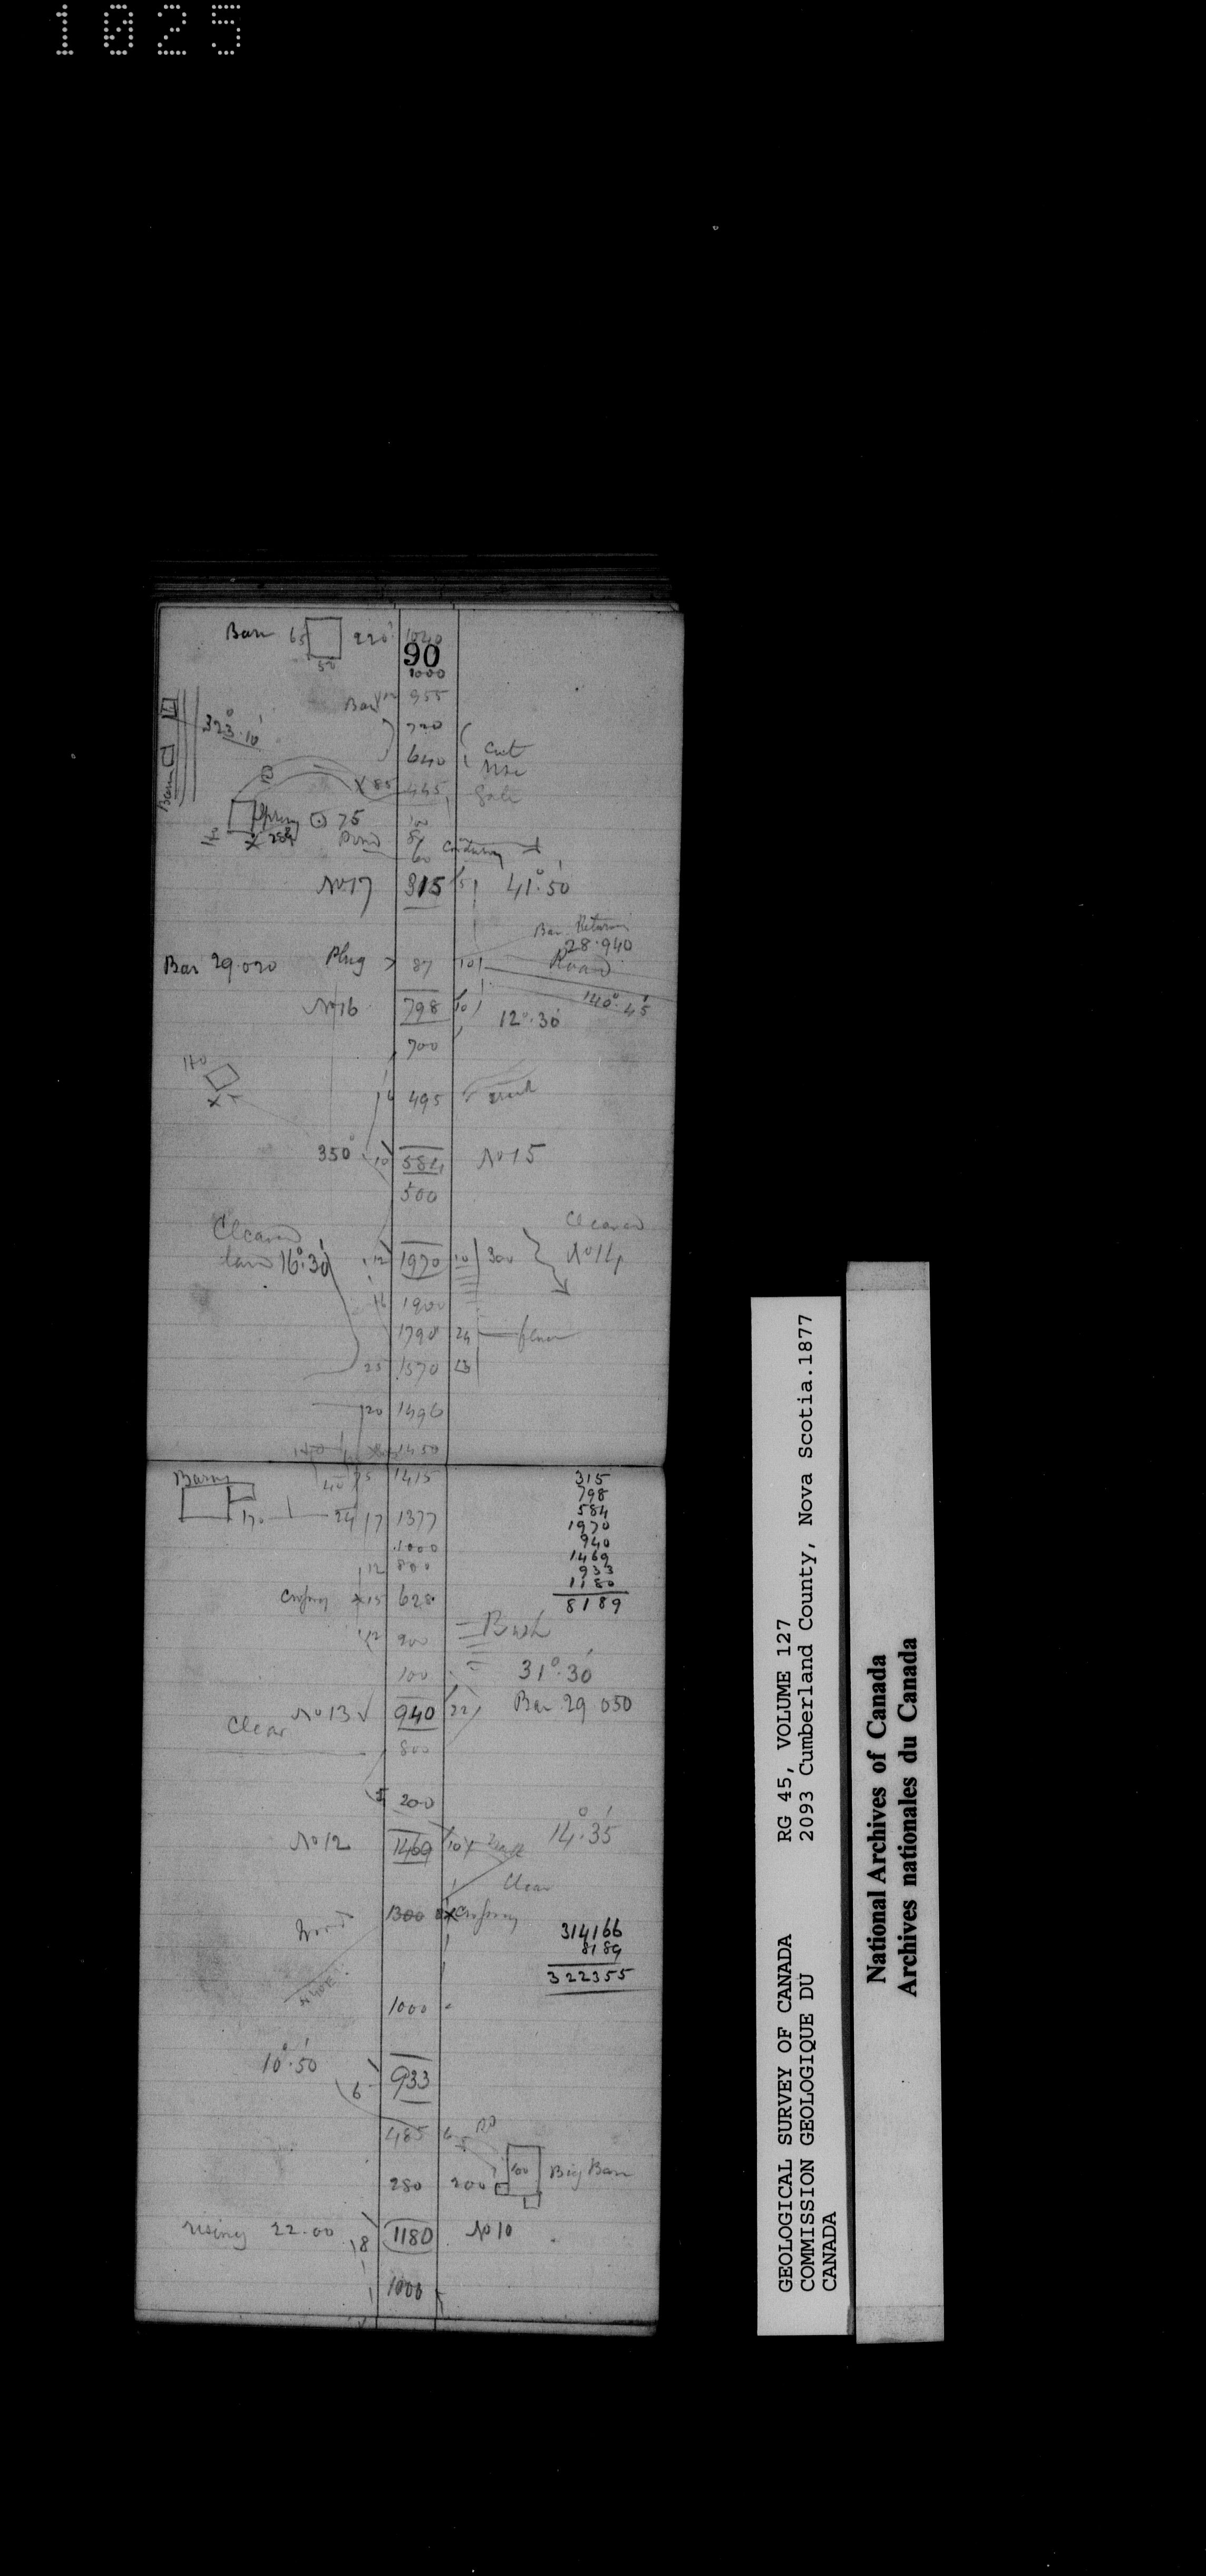 1025
Barn 65 220 1040
50
90
1000
Bar 955
323°.10'
720
640 Cut
Barn
X 85 445 Gate
100
75
Pond 60
No 17 315 5 41°.50'
Bar Return
28.940
Bar 29.020 Plug > 87 10 Road
140°.45'
No 16 798 10 12°.30'
700
110
495
350° 10 584 No 15
500
Cleared Cleared
land 16°.30' 12 1970 10 300 No 14
16 1900
1790 24 fence
25 1570 13
20 1496
1450
Barn 40 75 1415
170 24 17 1377
1000
12 800
Crossing x 15 628
12 200 Bush
100 31°.30'
315
798
584
1970
940
1469
933
1180
8189
No 13 940 22 Bar 29 050
Clear
800
5 200
No 12 1469 10 14°.35'
Clear
1300 x Crossing
Wood
314166
8189
322355
1000
10°.50' 6 933
485 6
280 200 100 Big Barn
rising 22.00 8 1180 No 10
1000
GEOLOGICAL SURVEY OF CANADA RG 45, VOLUME 127
COMMISSION GEOLOGIQUE DU 2093 Cumberland County, Nova Scotia.1877
CANADA
National Archives of Canada
Archives nationales du Canada